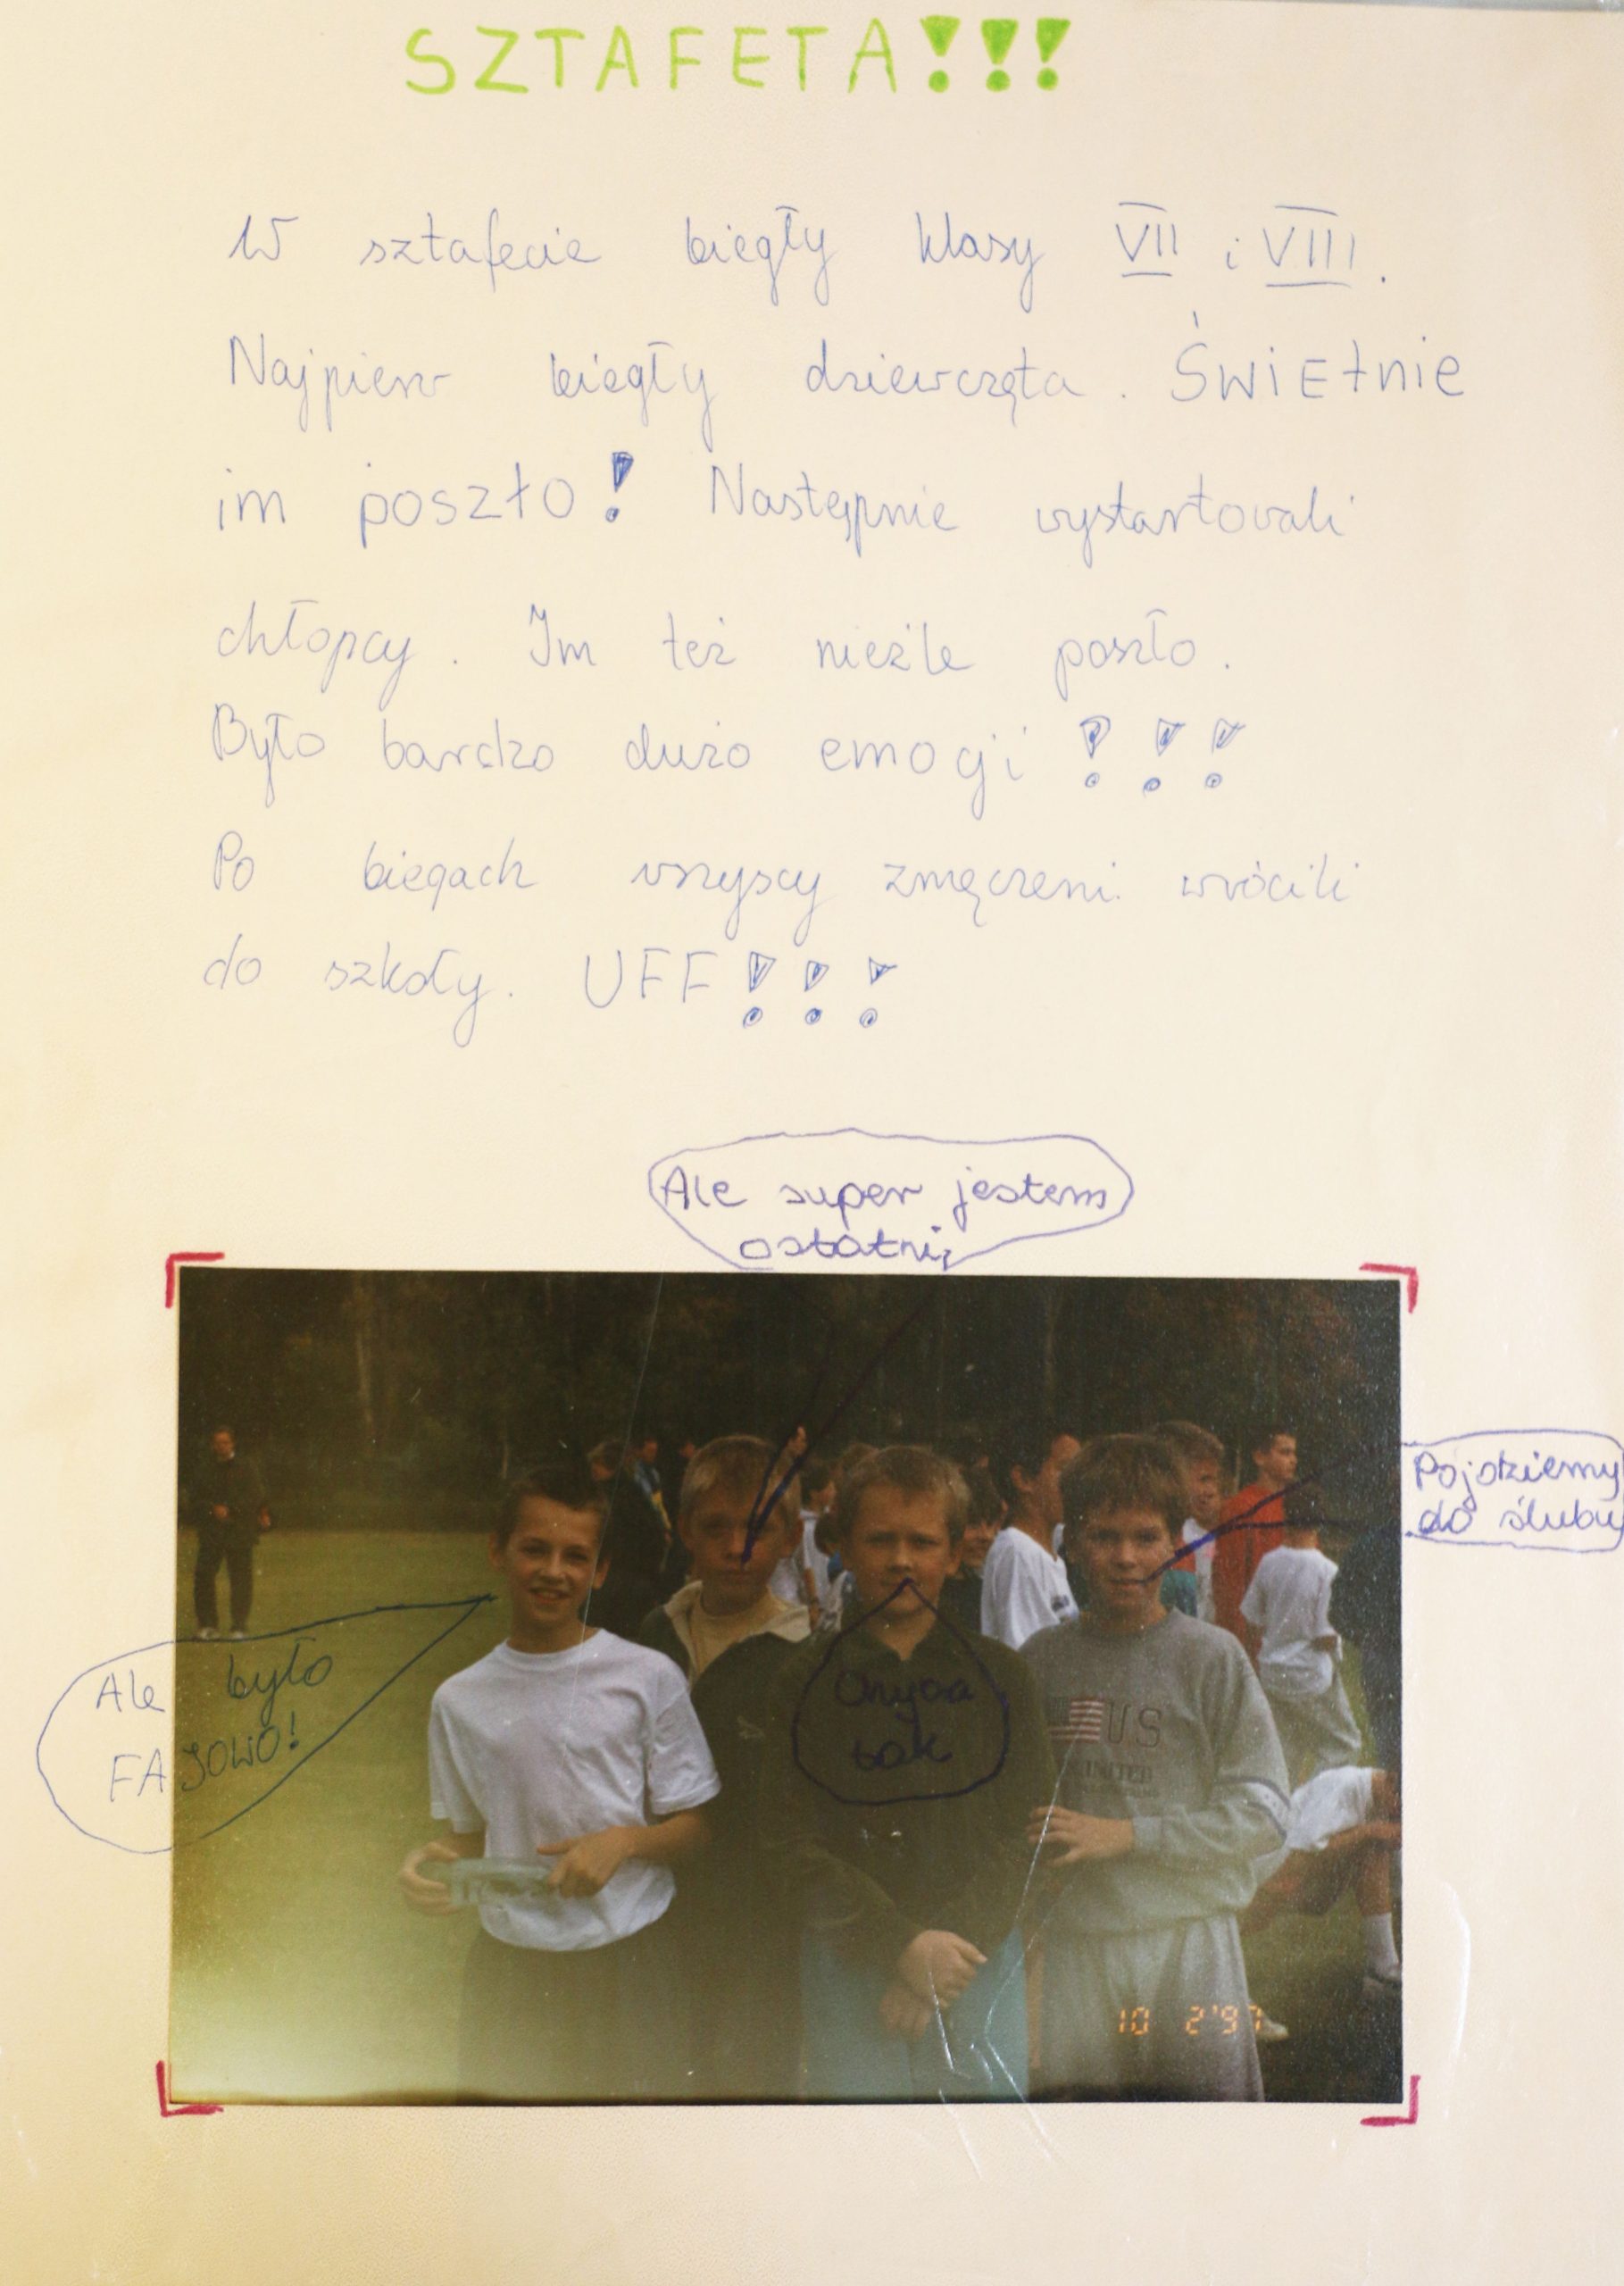 SZTAFETA!!!
W sztafecie biegły klasy VII i VIII.
Najpierw biegły dziewczęta. ŚWIEtnie
im poszło! Następnie wystartowali
chłopcy. Im też nieźle poszło.
Było bardzo dużo emocji!!!
Po biegach wszyscy zmęczeni wrócili
do szkoły. UFF!!!
Ale super jestem
ostatni,
Pojdziemy
do ślubu
Ale było
FAJOWO!
tak
US
UNITED
10 2'97